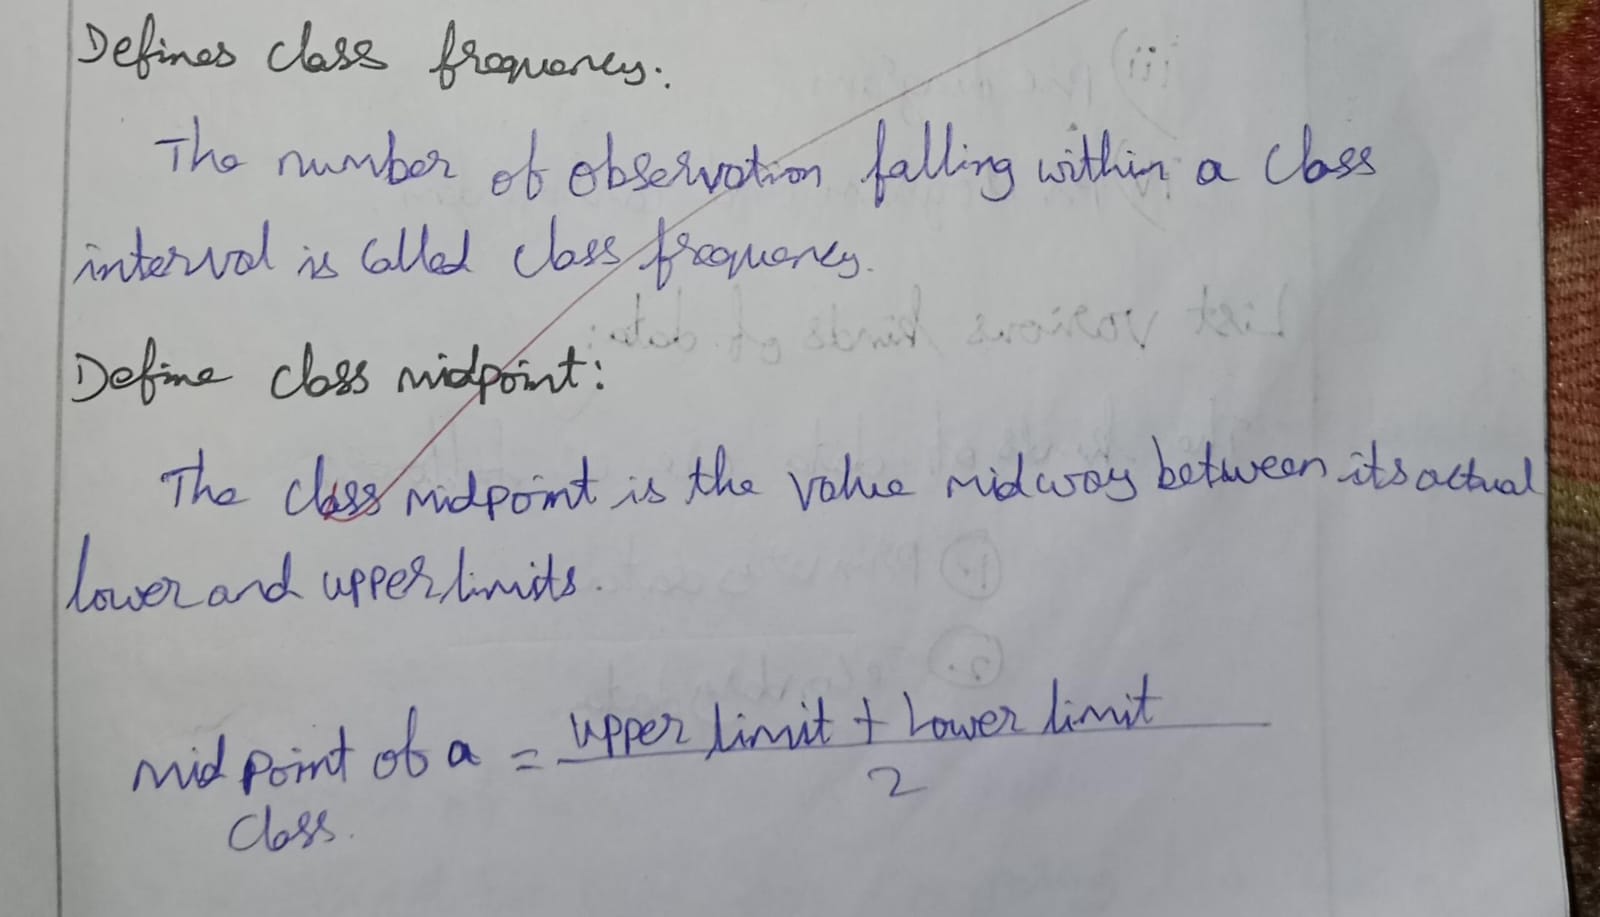 Defines class frequency:
The number of observation falling within a class
interval is called class frequency.
Define class midpoint:
The class midpoint is the value midway between its actual
lower and upper limits.
mid point of a = upper limit + Lower limit
2
class.